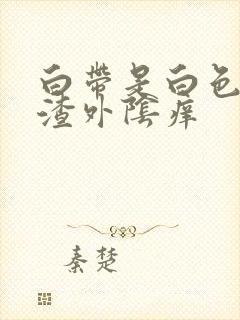 白帶是白色
渣外陰痒
秦楚